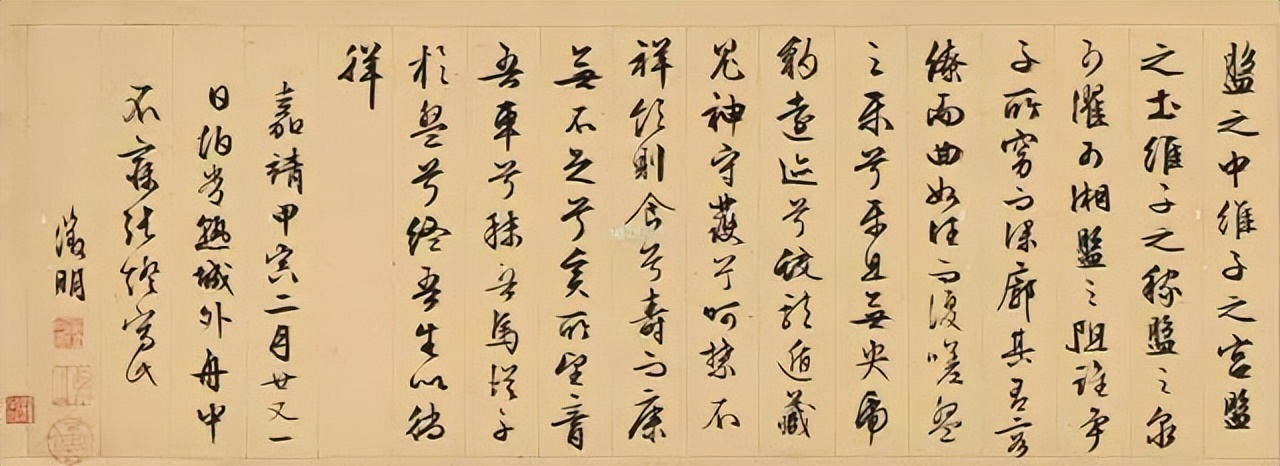 盤之中維子之宮盤
之土維子之稼盤之泉
可濯可湘盤之阻誰爭
子所窈而深廓其有容
繚而曲如往而復嗟盤
之樂兮樂且無央虎
豹遠迹兮蛟龍遁藏
鬼神守護兮呵禁不
祥飲則食兮壽而康
無不足兮奚所望膏
吾車兮秣吾馬從子
於盤兮終吾生以徜
徉
嘉靖甲寅二月廿又一
日泊常熟城外舟中
不寐張燈寫此
徵明